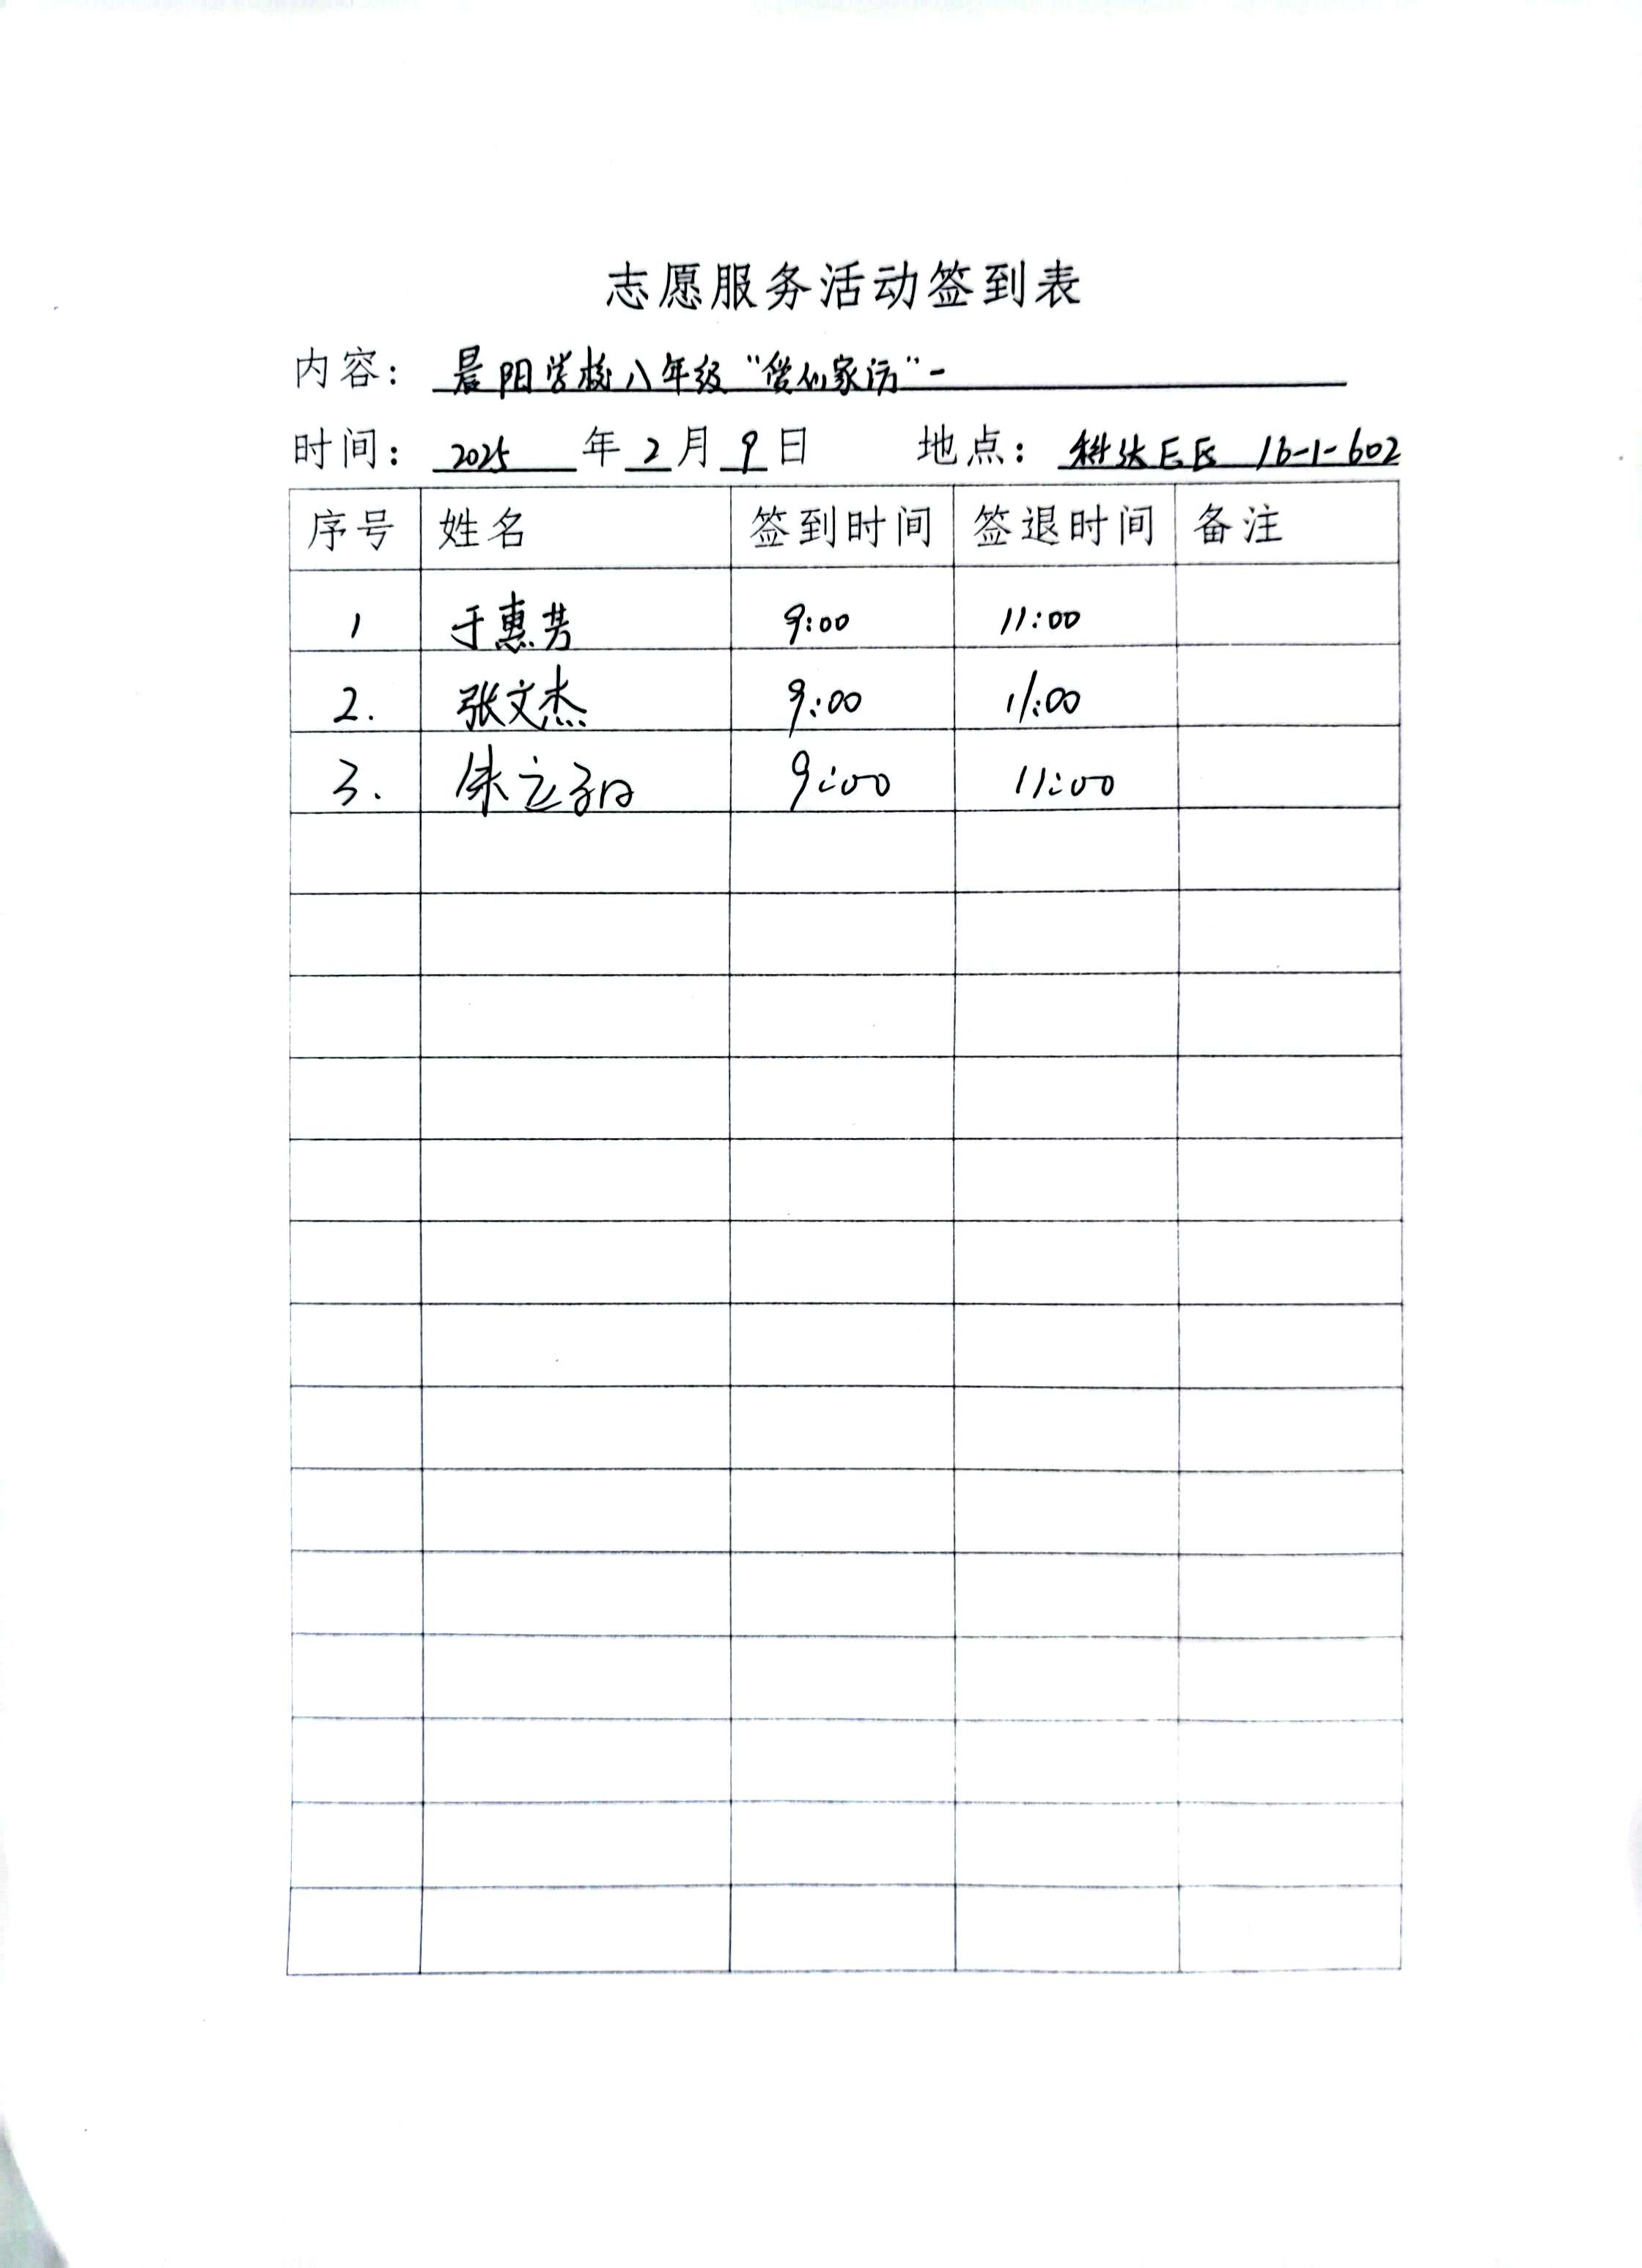 志愿服务活动签到表
内容： 晨阳学校八年级“爱心家访”-
时间： 2025 年 2 月 9 日 地点： 科达E区 16-1-602
序号 姓名 签到时间 签退时间 备注
1 于惠芳 9:00 11:00
2. 张文杰 9:00 11:00
3. 朱立 9:00 11:00